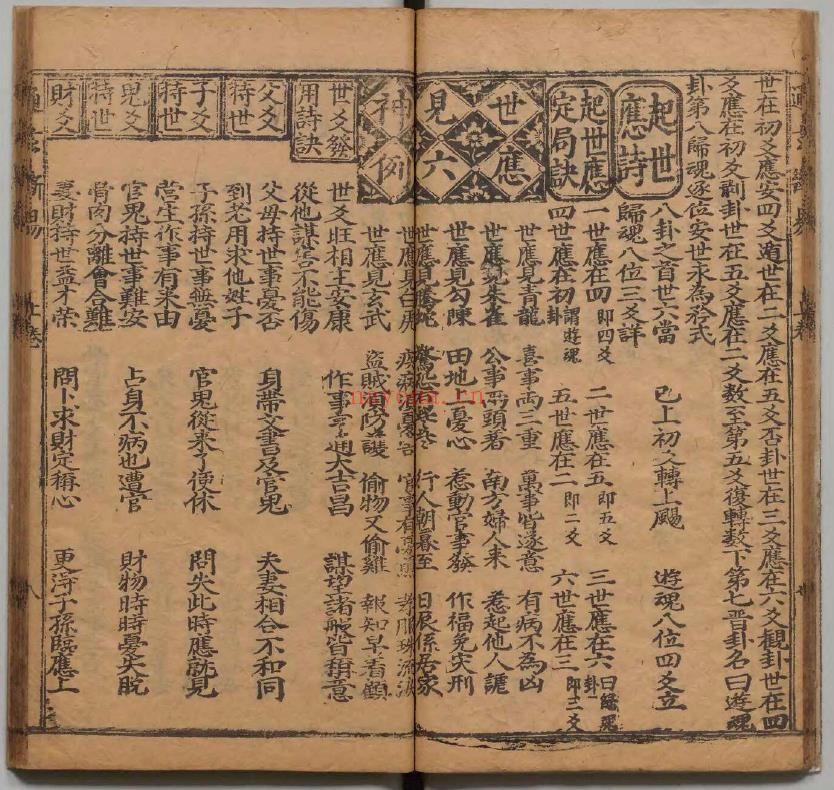 世在初爻應安四爻遁世在二爻應在五爻否卦世在三爻應在六爻観卦世在四
爻應在初爻剥卦世在五爻應在二爻数至第五爻復轉数下第七晋卦名曰遊魂
卦第八歸魂逐位安世永為矜式
起世應詩
八卦之首世六當 已上初爻轉上颺 遊魂八位四爻立
歸魂八位三爻詳
起世應定局訣
一世應在四即四爻 二世應在五即五爻 三世應在六曰歸魂卦
四世應在初謂遊魂卦 五世應在二即二爻 六世應在三即三爻
世應見六神例
世應見青龍 喜事兩三重 萬事皆遂意 有病不為凶
世應見朱雀 公事兩頭著 南方婦人来 惹起他人謔
世應見勾陳 田地上憂心 惹動官事發 作福免災刑
世應見螣蛇 行人朝暮至
世應見白虎 官事有憂
世應見玄武 盗賊須防護 偷物又偷雞 報知早看顧
世爻發用詩訣
世爻旺相主安康 作事亨通大吉昌 謀望諸般皆稱意
從他謀害不能傷
父爻持世
父母持世事憂否 身帶文書及官鬼 夫妻相合不和同
到老用求他姓子
子爻持世
子孫持世事無憂 官鬼從来了便休 問失此時應就見
营生作事有来由
鬼爻持世
官鬼持世事難安 占身不病也遭官 財物時時憂失脱
骨肉分離會合難
財爻持世
妻財持世益才荣 問卜求財定稱心 更得子孫臨應上